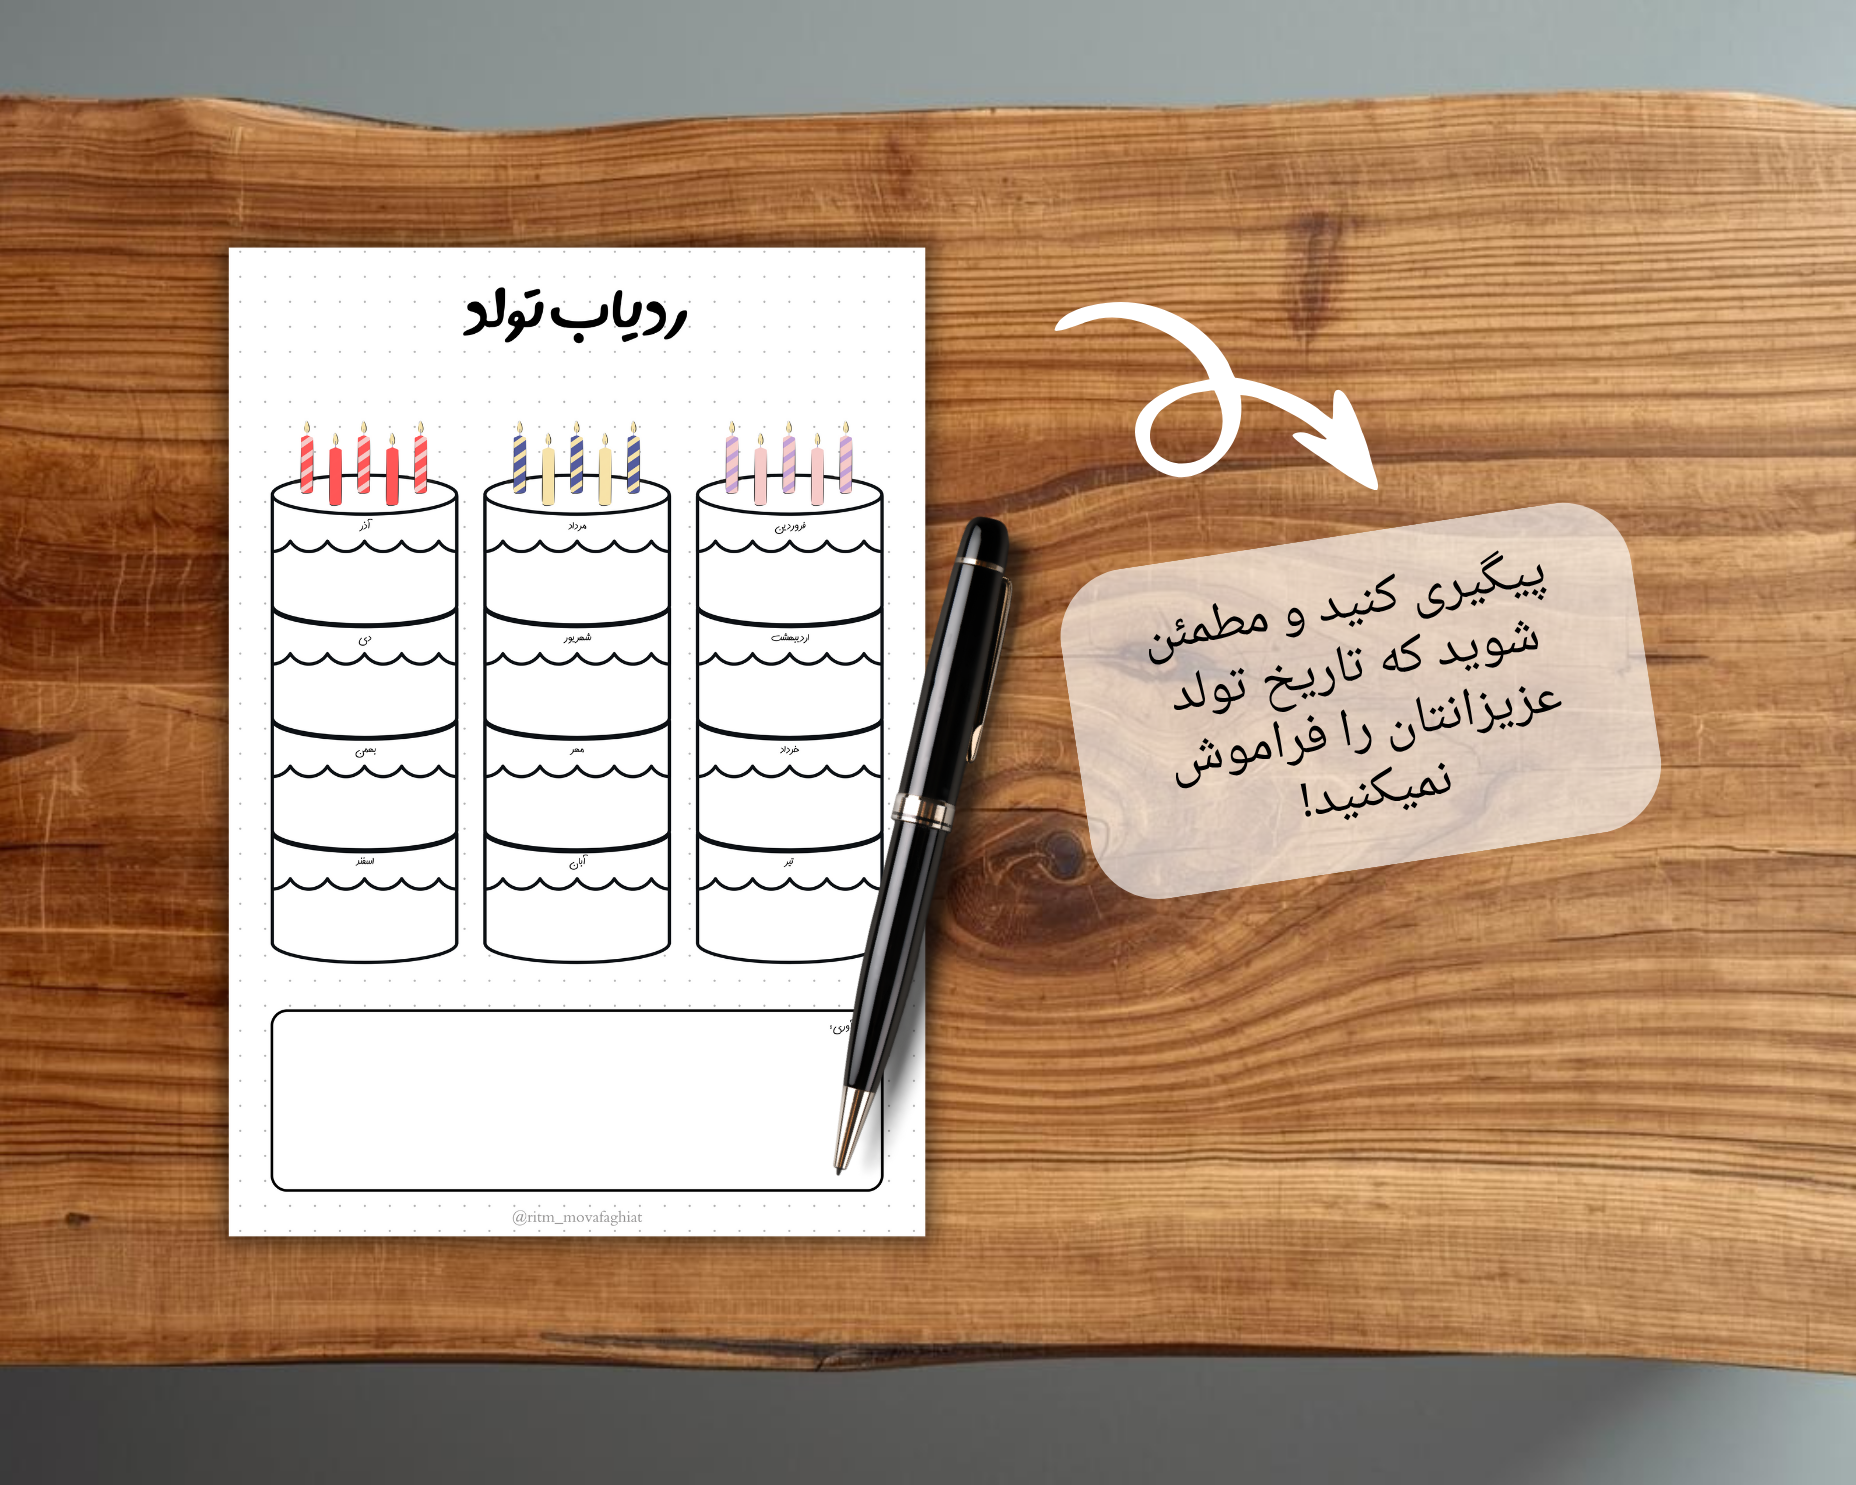 ردیاب تولد
فروردین
اردیبهشت
خرداد
تیر
مرداد
شهریور
مهر
آبان
آذر
دی
بهمن
اسفند
@ritm_movafaghiat
پیگیری کنید و مطمئن
شوید که تاریخ تولد
عزیزانتان را فراموش
نمیکنید!